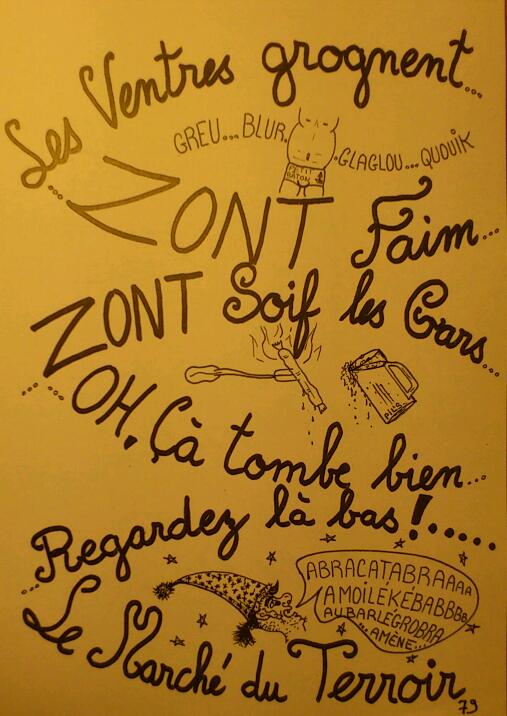 Les Ventres grognent...
GREU... BLUR. .GLAGLOU... QUOUIK
PETIT
BATON
...ZONT Faim...
ZONT Soif les Gars...
PILS
...OH, Çà tombe bien...
Regardez là bas!.....
ABRACATABRAAAA
AMOILÉKÉBABBBB
AUBARLÉGROBRA
...AMÈNE...
...Le Marché du Terroir
79